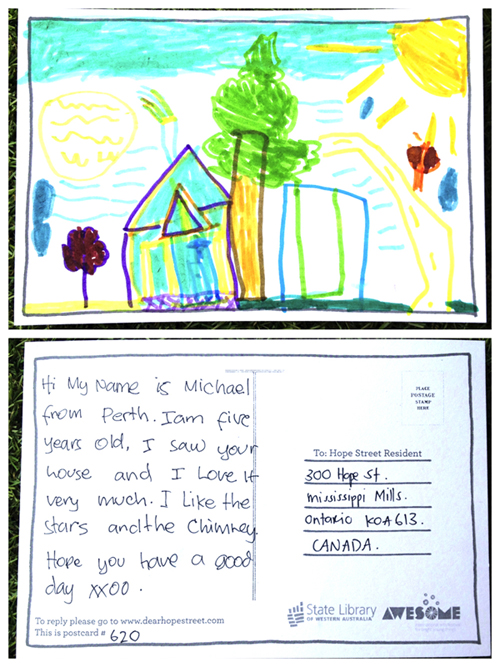 Hi My Name is Michael
from Perth. I am five
years old, I saw your
house and I Love it
very much. I Like the
stars and the Chimney.
Hope you have a good
day xxoo.
To reply please go to www.dearhopestreet.com
This is postcard # 620
PLACE
POSTAGE
STAMP
HERE
To: Hope Street Resident
300 Hope St.
mississippi Mills.
Ontario KOA613.
CANADA.
State Library
OF WESTERN AUSTRALIA
AWESOME